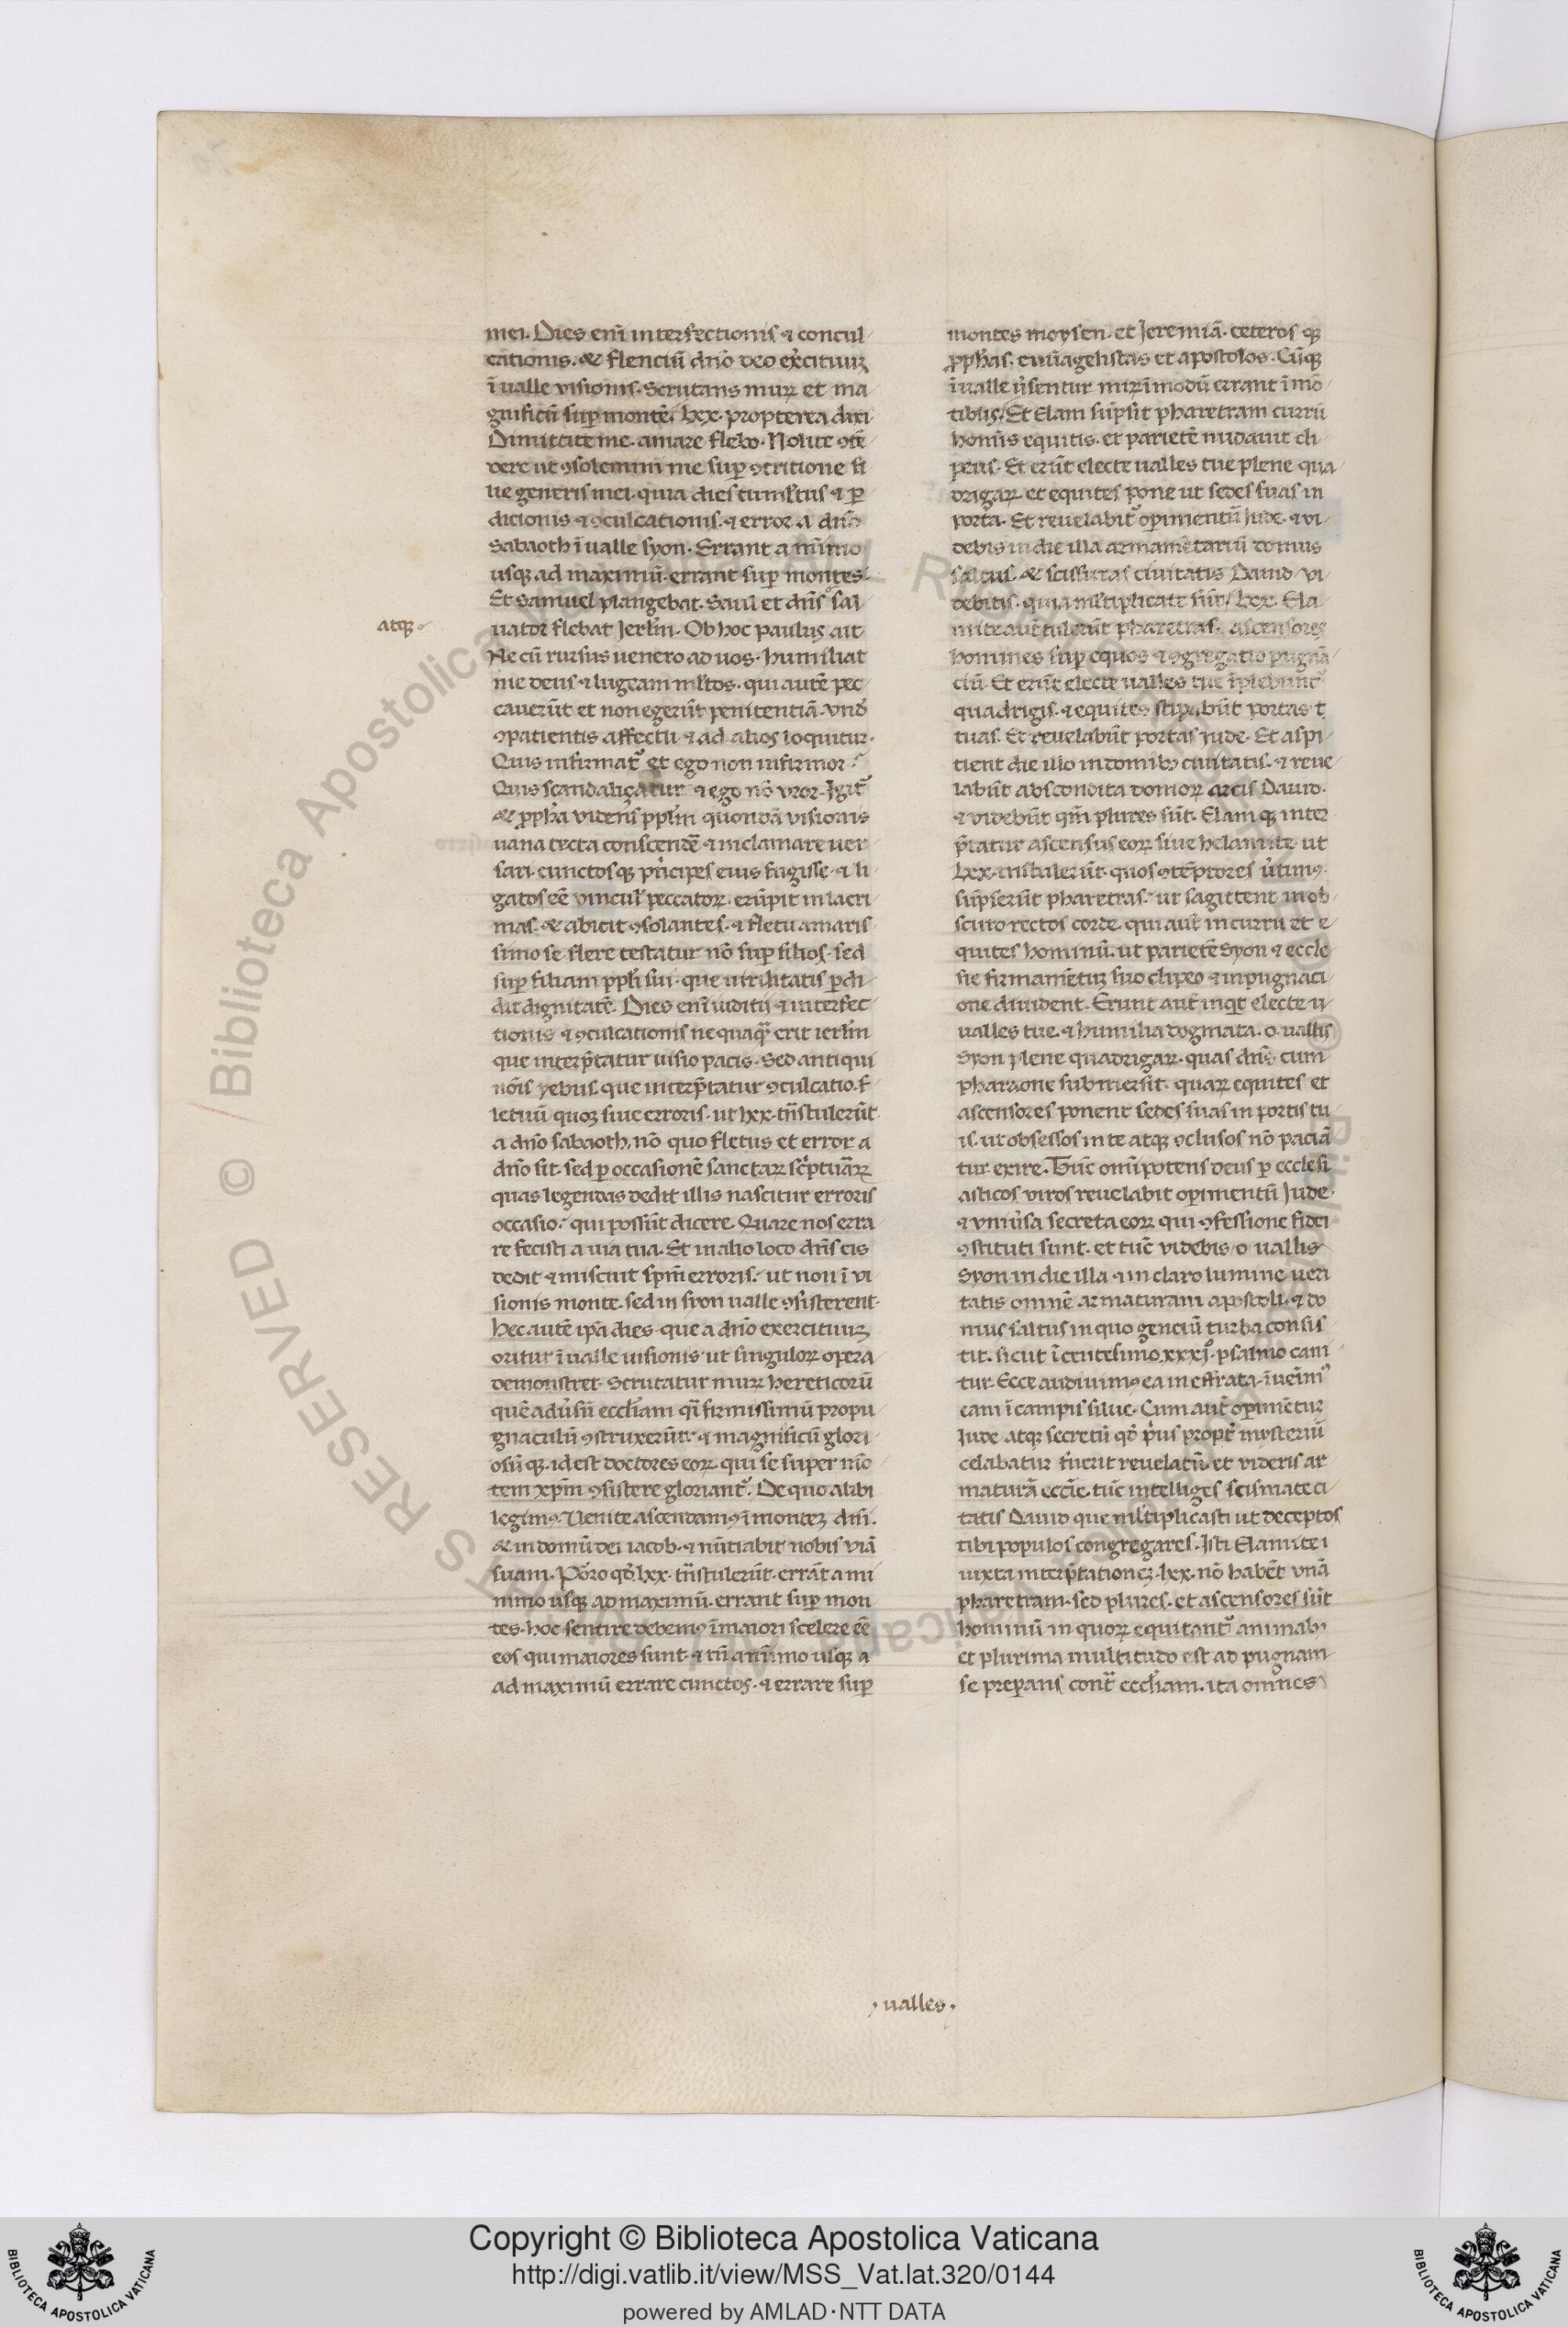 mei. Dies eni͂ interfectionis ⁊ concul
cationis. & flenciu͂ dn͂o deo ex̾cituuꝫ
i͂ ualle visionis. Scrutans muꝝ et ma
gnificu͂ sup̱ monte͂. lxx. propterea dixi
Dimittite me. amare flebo. Nolite ꝯte͂
dere ut ꝯsolemini me sup̱ ꝯtritione fi
lie generis mei. quia dies tumlt̾us ⁊ ꝑ
dicionis ⁊ ꝯculcationis. ⁊ error a dn͂o
Sabaoth i͂ ualle syon. Errant a mi͂imo
usqꝫ ad maximu͂. errant sup̱ montes.
Et Samuel plangebat. Saul et dn͂s sal
atqꝫ
uator flebat Jerłm. Ob hoc paulus ait
Ne cu͂ rursus uenero ad uos. humiliat
me deus ⁊ lugeam mlt̾os. qui aute͂ pec
caueru͂t et non egeru͂t penitentia͂. vn̄
ꝯpatientis affectu. ⁊ ad alios loquitur.
Quis infirmat᷑ et ego non infirmor.
Quis scandaliçatur ⁊ ego no͂ vror. Igit᷑
& ꝓph̄a videns ppłm quonda͂ visionis
uana tecta conscende͂ ⁊ inclamare uer
sari. cunctosqꝫ pͥncipes eius fugisse. ⁊ li
gatos ee͂ vincuł peccatoꝝ. eru͂pit in lacri
mas. & abicit ꝯsolantes. ⁊ fletu amaris
simo se flere testatur no͂ sup̱ filios. sed
sup̱ filiam ppłi sui. que uirilitatis ꝑdi
dit dignitate͂. Dies eni͂ iuditij ⁊ interfec
tionis ⁊ ꝯculcationis nequaqᷓ erit ierłm
que interp̄tatur uisio pacis. Sed antiqui
noi͂s yebus. que interp̄tatur ꝯculcatio. f
letuu͂ quoꝫ siue erroris. ut lxx. tn̄stuleru͂t
a dn͂o sabaoth. no͂ quo fletus et error a
dn͂o sit. sed ꝑ occasione͂ sanctaꝝ scͥptuaꝝ
quas legendas dedit illis nascitur erroris
occasio. qui possu͂t dicere. Quare nos erra
re fecisti a uia tua. Et in alio loco dn͂s eis
dedit ⁊ miscuit spm̄ erroris. ut non i͂ vi
sionis monte. sed in syon ualle ꝯsisterent.
hec aute͂ ip̄a dies. que a dn͂o exercituuꝫ
oritur i͂ ualle uisionis ut singuloꝝ opera
demonstret. Scrutatur muꝝ hereticoru͂
que͂ adu̾su͂ ecclia̅m qͥ firmissimu͂ propu
gnaculu͂ ꝯstruxeru͂t. ⁊ magnificu͂ glori
osu͂qꝫ. id est doctores eoꝝ qui se super mo͂
tem xpm̄ ꝯsistere gloriant᷑. De quo alibi
legimꝰ. Venite ascendamꝰ i͂ monteꝫ dn͂i.
& in domu͂ dei iacob. ⁊ nu͂tiabit nobis via͂
suam. Porro qd̾ lxx. tn̄stuleru͂t. erra͂t a mi
nimo usqꝫ ad maximu͂. errant sup̱ mon
tes. hoc sentire debemꝰ i͂ maiori scelere ee͂
eos qui maiores sunt. ⁊ tn̄ a minimo usqꝫ a
ad maximu͂ errare cunctos. ⁊ errare sup̱
montes moysen. et Jeremia͂. ceteros qꝫ
ꝓph̄as. euuagelistas et apostolos. Cu͂qꝫ
i͂ ualle u̾sentur miꝝ i͂ modu͂ errant i͂ mo͂
tibus. Et Elam su͂psit pharetram curru͂
homi͂s equitis. et pariete͂ nudauit cli
peus. Et eru͂t electe ualles tue plene qua
drigaꝝ. et equites pone ut sedes suas in
porta. Et reuelabit᷑ oꝑimentu͂ Jude. ⁊ vi
debis in die illa armame͂tariu͂ domus
saltus. & scissuras ciuitatis Dauid vi
debitis. quia mlt̾iplicate su͂t. lxx. Ela
mite aut̾ tuleru͂t pharetras. ascensores
homines sup̱ equos ⁊ ꝯgregatio pugna͂
ciu͂. Et eru͂t electe ualles tue i͂plebunt᷑
quadrigis. ⁊ equites stipabu͂t portas t
tuas. Et reuelabu͂t portas Jude. Et aspi
cient die illo in domibꝫ ciuitatis. ⁊ reue
labu͂t abscondita domoꝝ arcis Dauid.
⁊ videbu͂t qm̄ plures su͂t. Elam qꝫ inter
p̄tatur ascensus eoꝝ siue helamite. ut
lxx. instuleru͂t. quos ꝯte͂ptores u̾timꝰ.
su͂pseru͂t pharetras. ut sagittent in ob
scuro rectos corde. qui aut̾ in curru et e
quites hominu͂. ut pariete͂ Syon ⁊ eccle
sie firmame͂tuꝫ suo clipeo ⁊ inpugnaci
one diuident. Erunt aut̾ inqͥt electe u
ualles tue. ⁊ humilia dogmata. o uallis
Syon plene quadrigaꝝ. quas dn͂s cum
pharaone submersit. quaꝝ equites et
ascensores ponent sedes suas in portis tu
is. ut obsessos in te atqꝫ ꝯclusos no͂ pacia͂
tur exire. Tu͂c omi͂potens deus ꝑ ecclesi
asticos viros reuelabit oꝑimentu͂ Jude.
⁊ vniu̾sa secreta eoꝝ qui ꝯfessione fidei
ꝯstituti sunt. et tu͂c videbis o uallis
Syon in die illa ⁊ in claro lumine ueri
tatis omne͂ armaturam apostoli. ⁊ do
mus saltus in quo genciu͂ turba consis
tit. sicut i͂ centesimo.xxxi͂ᵒ. psalmo cani
tur. Ecce audiuimꝰ ea in effrata. i͂ueni͂mꝰ
eam i͂ campis silue. Cum aut̾ oꝑime͂tuꝫ
Jude atqꝫ secretu͂ qd̾ pͥus propt̾ mysteriu͂
celabatur fuerit reuelatu͂. et videris ar
matura͂ eccl̄ie. tu͂c intelliges scismate ci
tatis Dauid que mlt̾iplicasti ut deceptos
tibi populos congregares. Isti Elamite i
iuxta interp̄tationeꝫ. lxx. no͂ habe͂t vna͂
pharetram. sed plures. et ascensores su͂t
hominu͂ in quoꝝ equitant᷑ animabꝫ
et plurima multitudo est ad pugnam
se preꝑans contͣ ecclia̅m. ita omnes
. ualles .
© Biblioteca Apostolica Vaticana ALL RIGHTS RESERVED
Copyright © Biblioteca Apostolica Vaticana
http://digi.vatlib.it/view/MSS_Vat.lat.320/0144
powered by AMLAD·NTT DATA
BIBLIOTECA APOSTOLICA VATICANA
BIBLIOTECA APOSTOLICA VATICANA